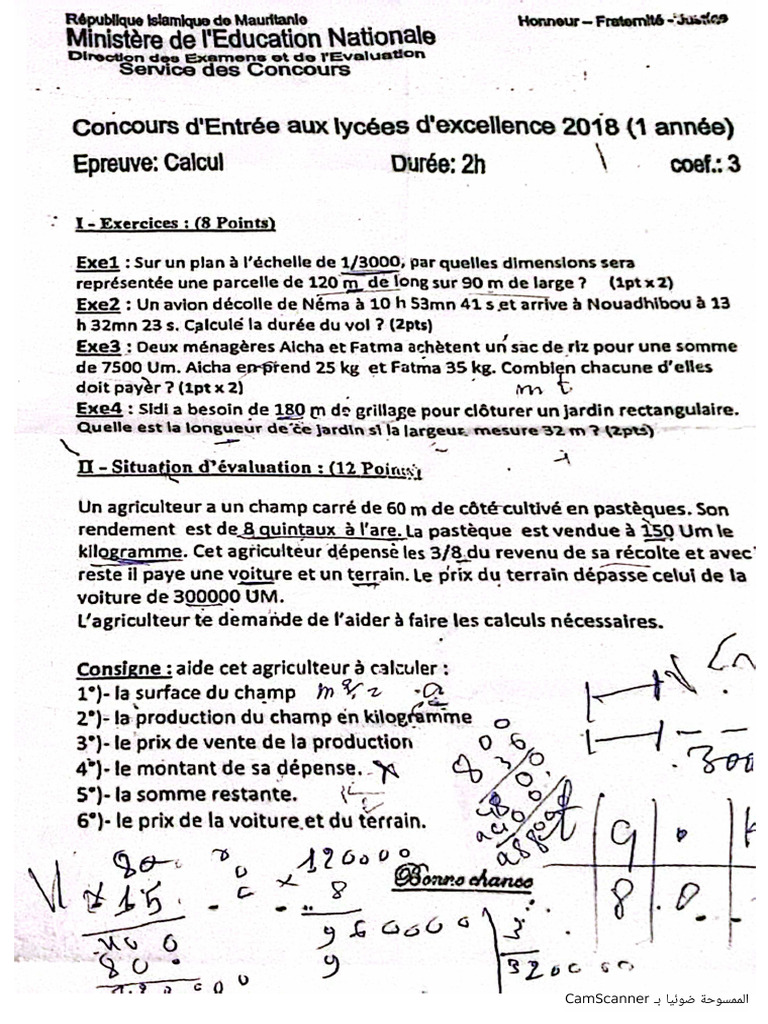 République Islamique de Mauritanie
Honneur – Fraternité – Justice
Ministère de l'Education Nationale
Direction des Examens et de l'Evaluation
Service des Concours
Concours d'Entrée aux lycées d'excellence 2018 (1 année)
Epreuve: Calcul Durée: 2h coef.: 3
I - Exercices : (8 Points)
Exe1 : Sur un plan à l'échelle de 1/3000, par quelles dimensions sera
représentée une parcelle de 120 m de long sur 90 m de large ? (1pt x 2)
Exe2 : Un avion décolle de Néma à 10 h 53mn 41 s et arrive à Nouadhibou à 13
h 32mn 23 s. Calcule la durée du vol ? (2pts)
Exe3 : Deux ménagères Aicha et Fatma achètent un sac de riz pour une somme
de 7500 Um. Aicha en prend 25 kg et Fatma 35 kg. Combien chacune d'elles
doit payer ? (1pt x 2)
Exe4 : Sidi a besoin de 180 m de grillage pour clôturer un jardin rectangulaire.
Quelle est la longueur de ce jardin si la largeur mesure 32 m ? (2pts)
II - Situation d'évaluation : (12 Points)
Un agriculteur a un champ carré de 60 m de côté cultivé en pastèques. Son
rendement est de 8 quintaux à l'are. La pastèque est vendue à 150 Um le
kilogramme. Cet agriculteur dépense les 3/8 du revenu de sa récolte et avec
reste il paye une voiture et un terrain. Le prix du terrain dépasse celui de la
voiture de 300000 UM.
L'agriculteur te demande de l'aider à faire les calculs nécessaires.
Consigne : aide cet agriculteur à calculer :
1°)- la surface du champ
2°)- la production du champ en kilogramme
3°)- le prix de vente de la production
4°)- le montant de sa dépense.
5°)- la somme restante.
6°)- le prix de la voiture et du terrain.
Bonne chance
120000
× 8
960000
الممسوحة ضوئيا بـ CamScanner